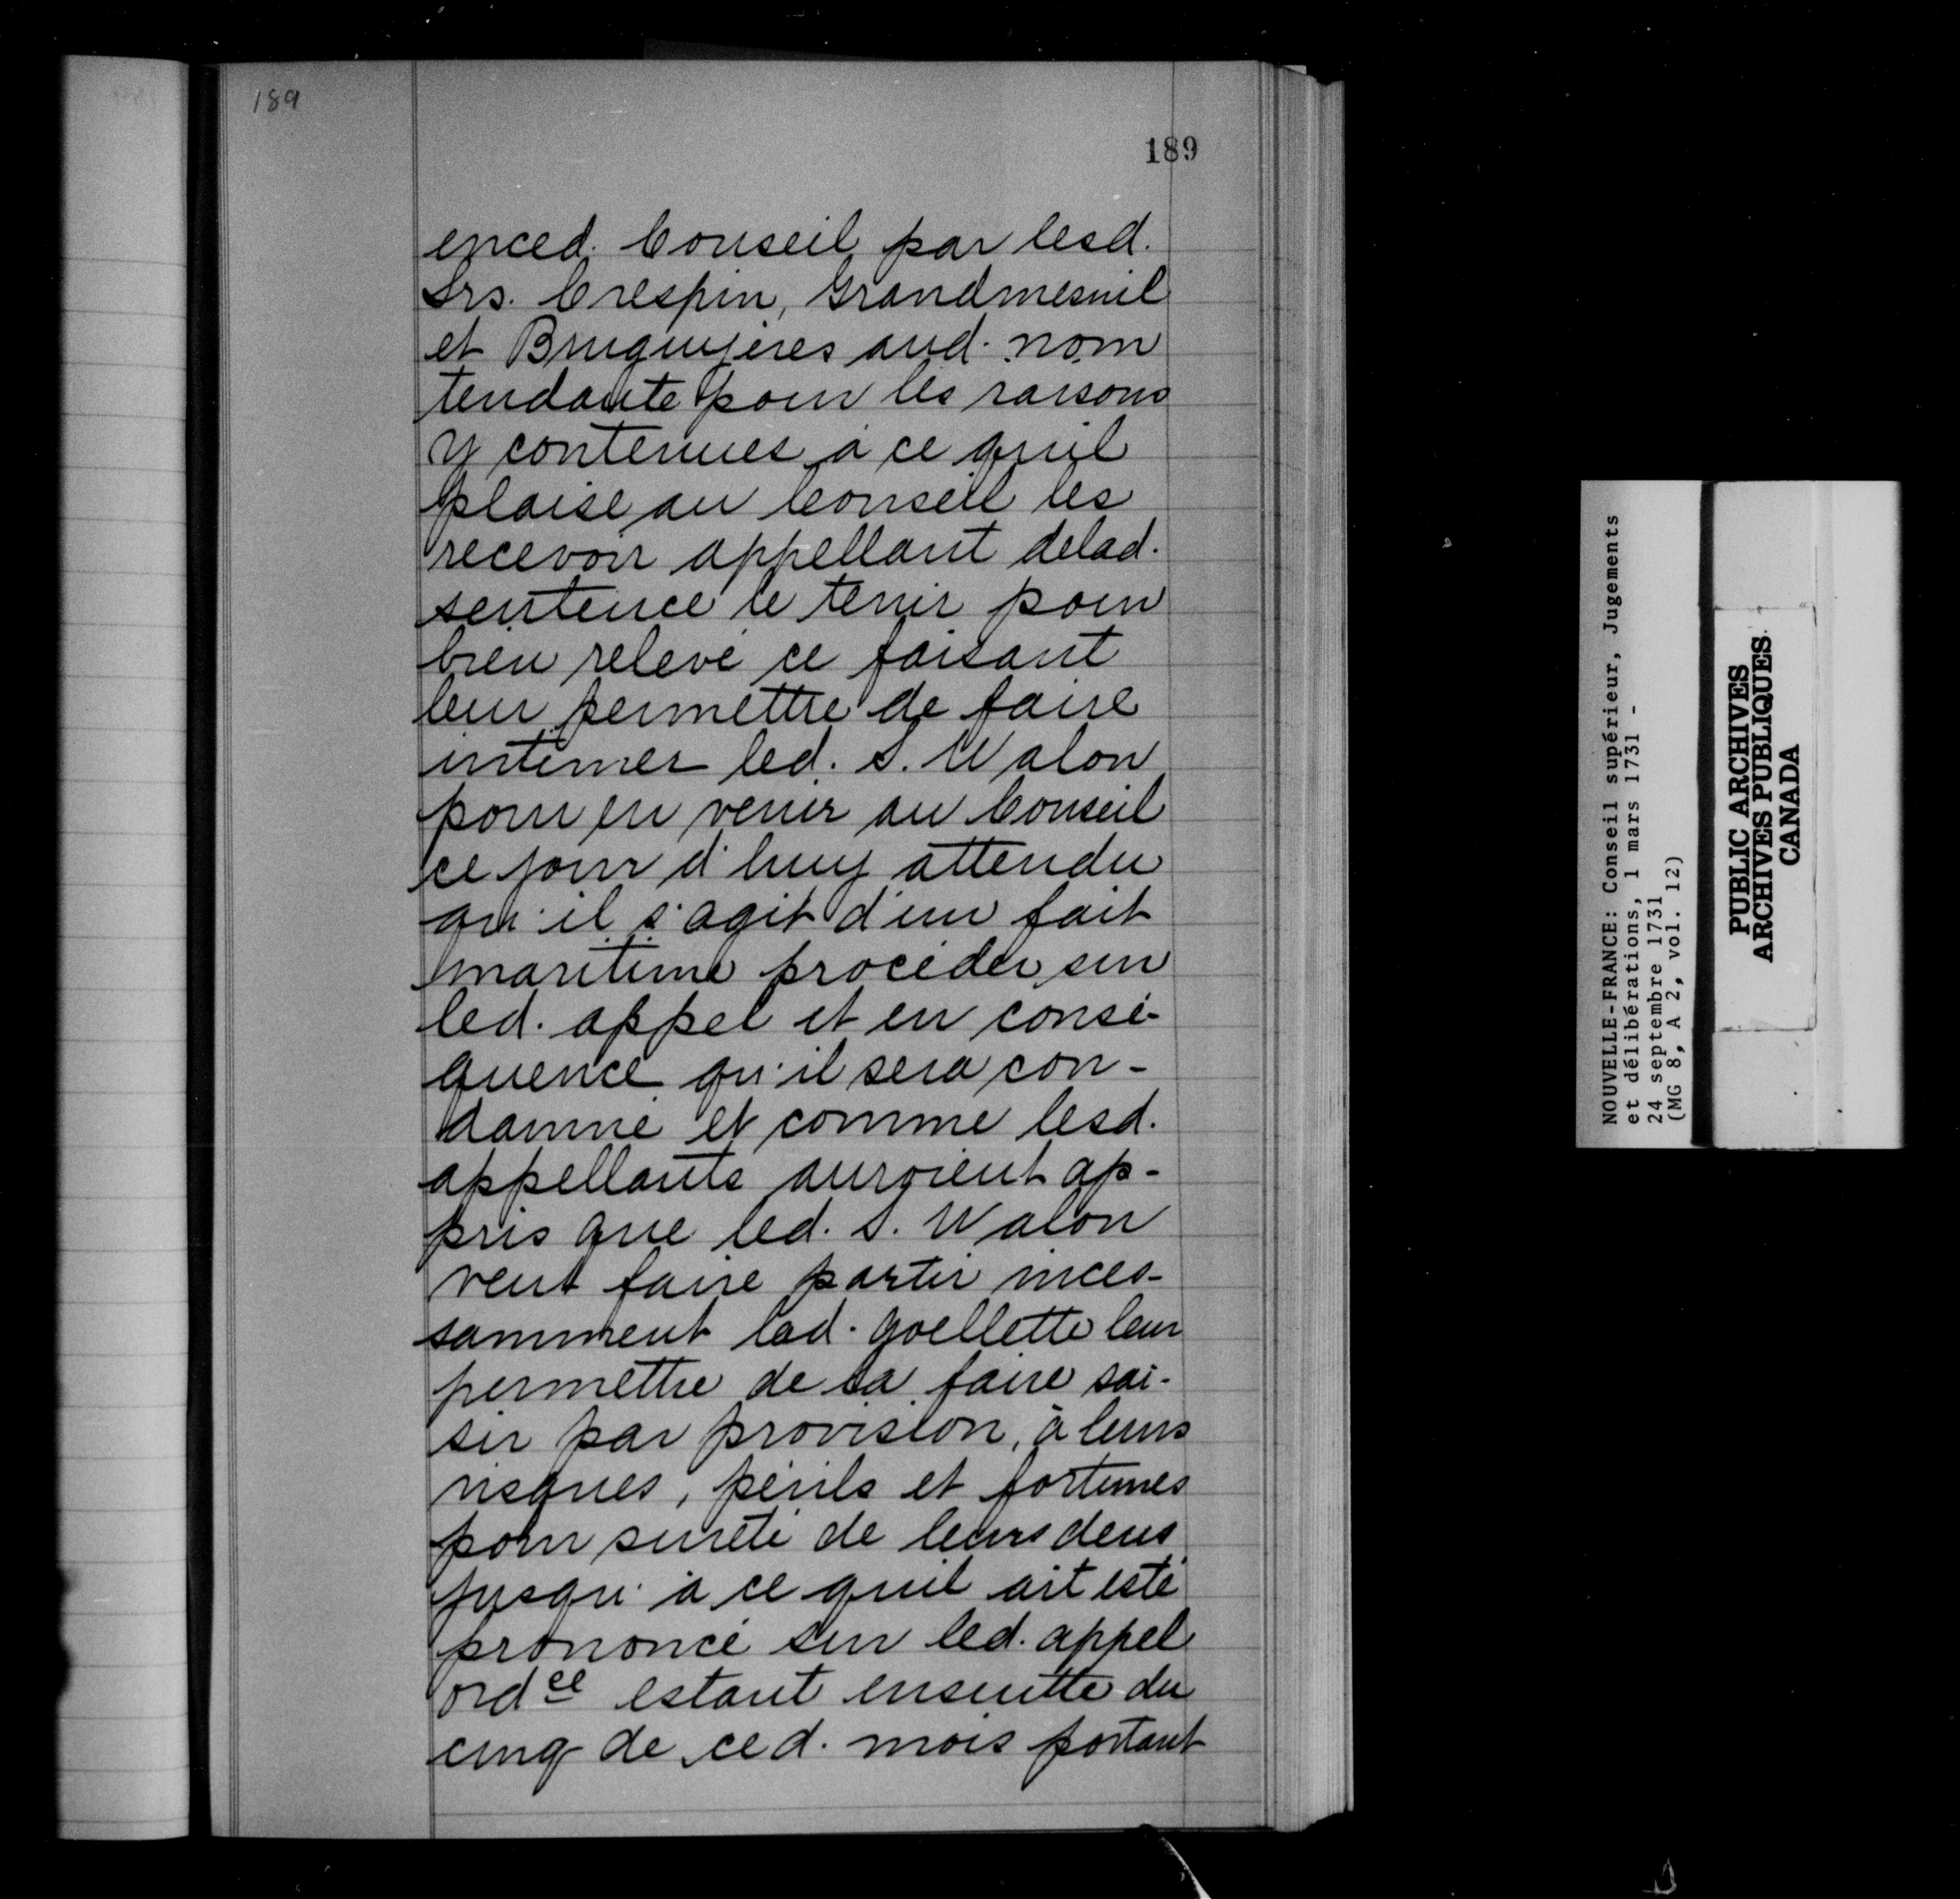 189
189
enced. Conseil par lesd.
Srs. Crespin, Grandmesnil
et Bruguyères aud. nom
tendante pour les raisons
y contenues à ce qu'il
plaise au Conseil les
recevoir appellant delad.
sentence le tenir pour
bien relevé ce faisant
leur permettre de faire
intimer led. S. Walon
pour en venir au Conseil
ce jour d'huy attendu
qu'il s'agit d'un fait
maritime procéder sur
led. appel et en consé-
quence qu'il sera con-
damné et comme lesd.
appellants auroient ap-
pris que led. S. Walon
veut faire partir inces-
samment lad. goellette leur
permettre de la faire sai-
sir par provision, à leurs
risques, périls et fortunes
pour sureté de leurs deus
jusqu'à ce quil ait esté
prononcé sur led. appel
ordce estant ensuitte du
cinq de ced. mois portant
NOUVELLE-FRANCE: Conseil supérieur, Jugements
et délibérations, 1 mars 1731 -
24 septembre 1731
(MG 8, A 2, vol. 12)
PUBLIC ARCHIVES
ARCHIVES PUBLIQUES
CANADA